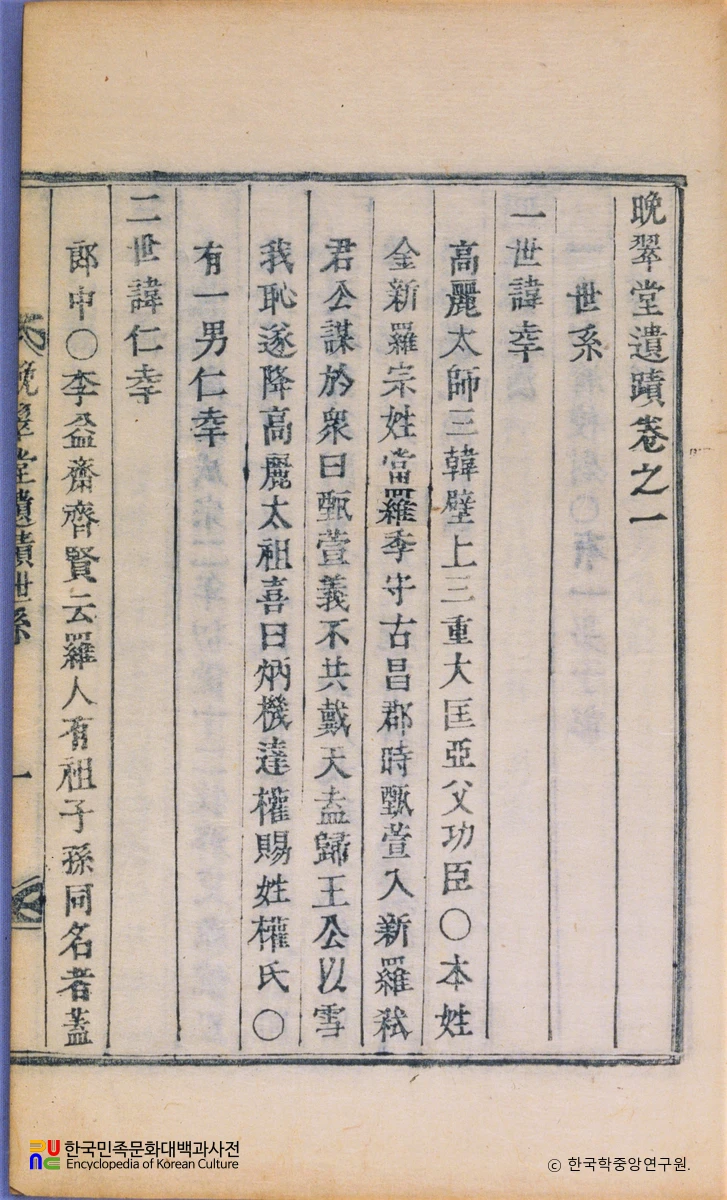 晩翠堂遺蹟卷之一
世系
一世諱幸
高麗太師三韓壁上三重大匡亞父功臣〇本姓
金新羅宗姓當羅季守古昌郡時甄萱入新羅弑
君公謀於衆曰甄萱義不共戴天盍歸王公以雪
我恥遂降高麗太祖喜曰炳機達權賜姓權氏〇
有一男仁幸
二世諱仁幸
郎中〇李益齋齊賢云羅人有祖子孫同名者蓋
晩翠堂遺蹟世系
一
한국민족문화대백과사전
Encyclopedia of Korean Culture
© 한국학중앙연구원.